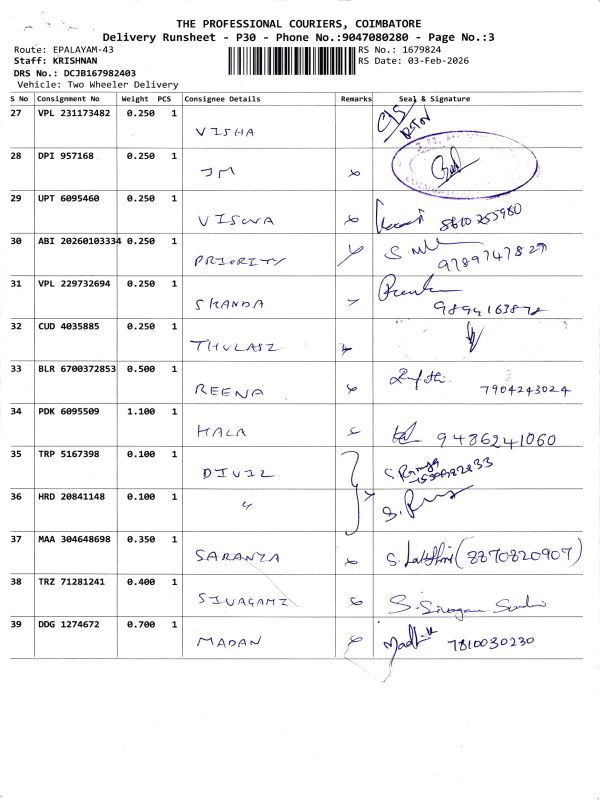 THE PROFESSIONAL COURIERS, COIMBATORE
Delivery Runsheet - P30 - Phone No.:9047080280 - Page No.:3
Route: EPALAYAM-43
RS No.: 1679824
Staff: KRISHNAN
RS Date: 03-Feb-2026
DRS No.: DCJB167982403
Vehicle: Two Wheeler Delivery
S No Consignment No Weight PCS Consignee Details Remarks Seal & Signature
27 VPL 231173482 0.250 1
VISHA
28 DPI 957168 0.250 1
JM
29 UPT 6095460 0.250 1
VISWA 8610255980
30 ABI 20260103334 0.250 1
PRIORITY 9789747827
31 VPL 229732694 0.250 1
SKANDA
32 CUD 4035885 0.250 1
THULASI
33 BLR 6700372853 0.500 1
REENA 7904243024
34 PDK 6095509 1.100 1
MALA 9486241060
35 TRP 5167398 0.100 1
DIVIL
36 HRD 20841148 0.100 1
"
37 MAA 304648698 0.350 1
SARANZA S. Lakshmi (8870820907)
38 TRZ 71281241 0.400 1
SIVAGAMI
39 DDG 1274672 0.700 1
MADAN 7810030230